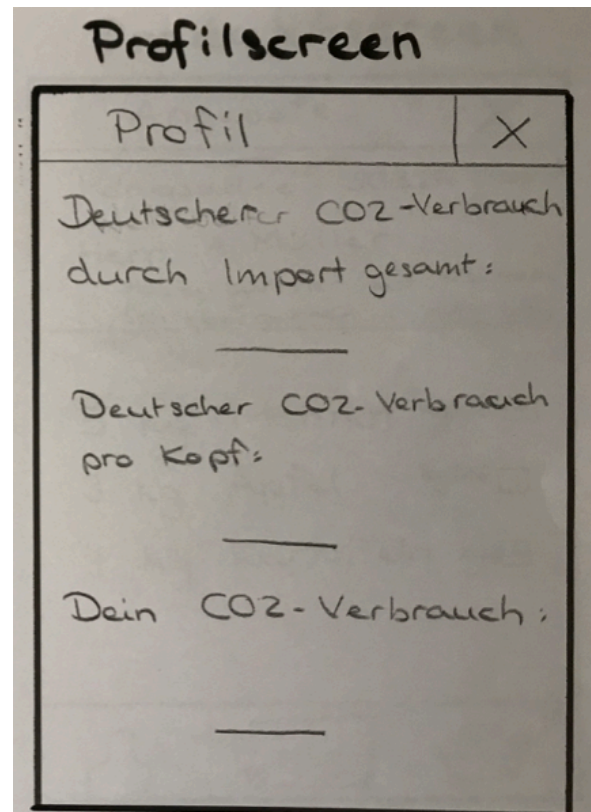 Profilscreen
Profil X
Deutscher CO2-Verbrauch
durch Import gesamt:
Deutscher CO2-Verbrauch
pro Kopf:
Dein CO2-Verbrauch: